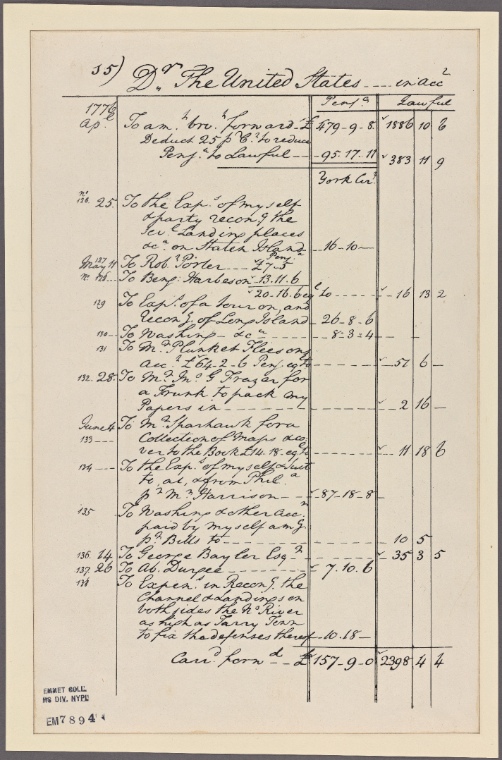 35) Dr. The United States .... in accᵗ
Pensᵃ Lawful
1776
Apˡ To amᵗ broᵗ forward £ 479-9-8 1886 10 6
Deduct 25 pʳ Cᵗ to reduce
Pensᵃ to Lawful -- 95.17.11 383 11 9
York Curʸ
Nº 126. 25. To the Expˢ of myself
& party reconᵍ the
Sevˡ Landing places
&cᵃ on Staten Island 16-10-
May 11 127 To Robᵗ Porter £7-5 Pensᵃ
Nº 128 To Benjⁿ Harbeson 13.11.6
20.16.6 eqˡ to 16 13 2
129 To Expˢ of a tour on, and
reconᵍ of Long Island 26-8-6
130 To Washing &cᵃ 8-3-4
131 To Mʳˢ Plunket
accᵗ £64-2-6 Pensᵃ eqˡ to 57 6 -
132. 28. To Mʳ Jnº G Frazer for
a Trunk to pack my
Papers in 2 16 -
June 4 To Mʳ Sparhawk for a
133 Collection of Maps & co
ver to the Book £14.18. eqˡ to 11 18 6
134 To the Expˢ of myself & Suit
to, at, & from Philᵃ
pʳ Mʳ Harrison 87-18-8
135 To Washing & other accᵗˢ
paid by myself amᵍ
pʳ Bills to 10 5
136. 24 To George Baylor Esqʳ 35 3 5
137. 26 To Ab. Duryee 7.10.6
138 To Expenˢ in Reconᵍ the
Channel & Landings on
both sides the Nº River
as high as Tarry Town
to fix the defenses thereof 10-18-
Carrᵈ forwᵈ £157-9-0 2398 4 4
EMMET COLL.
MS DIV. NYPL
EM7894